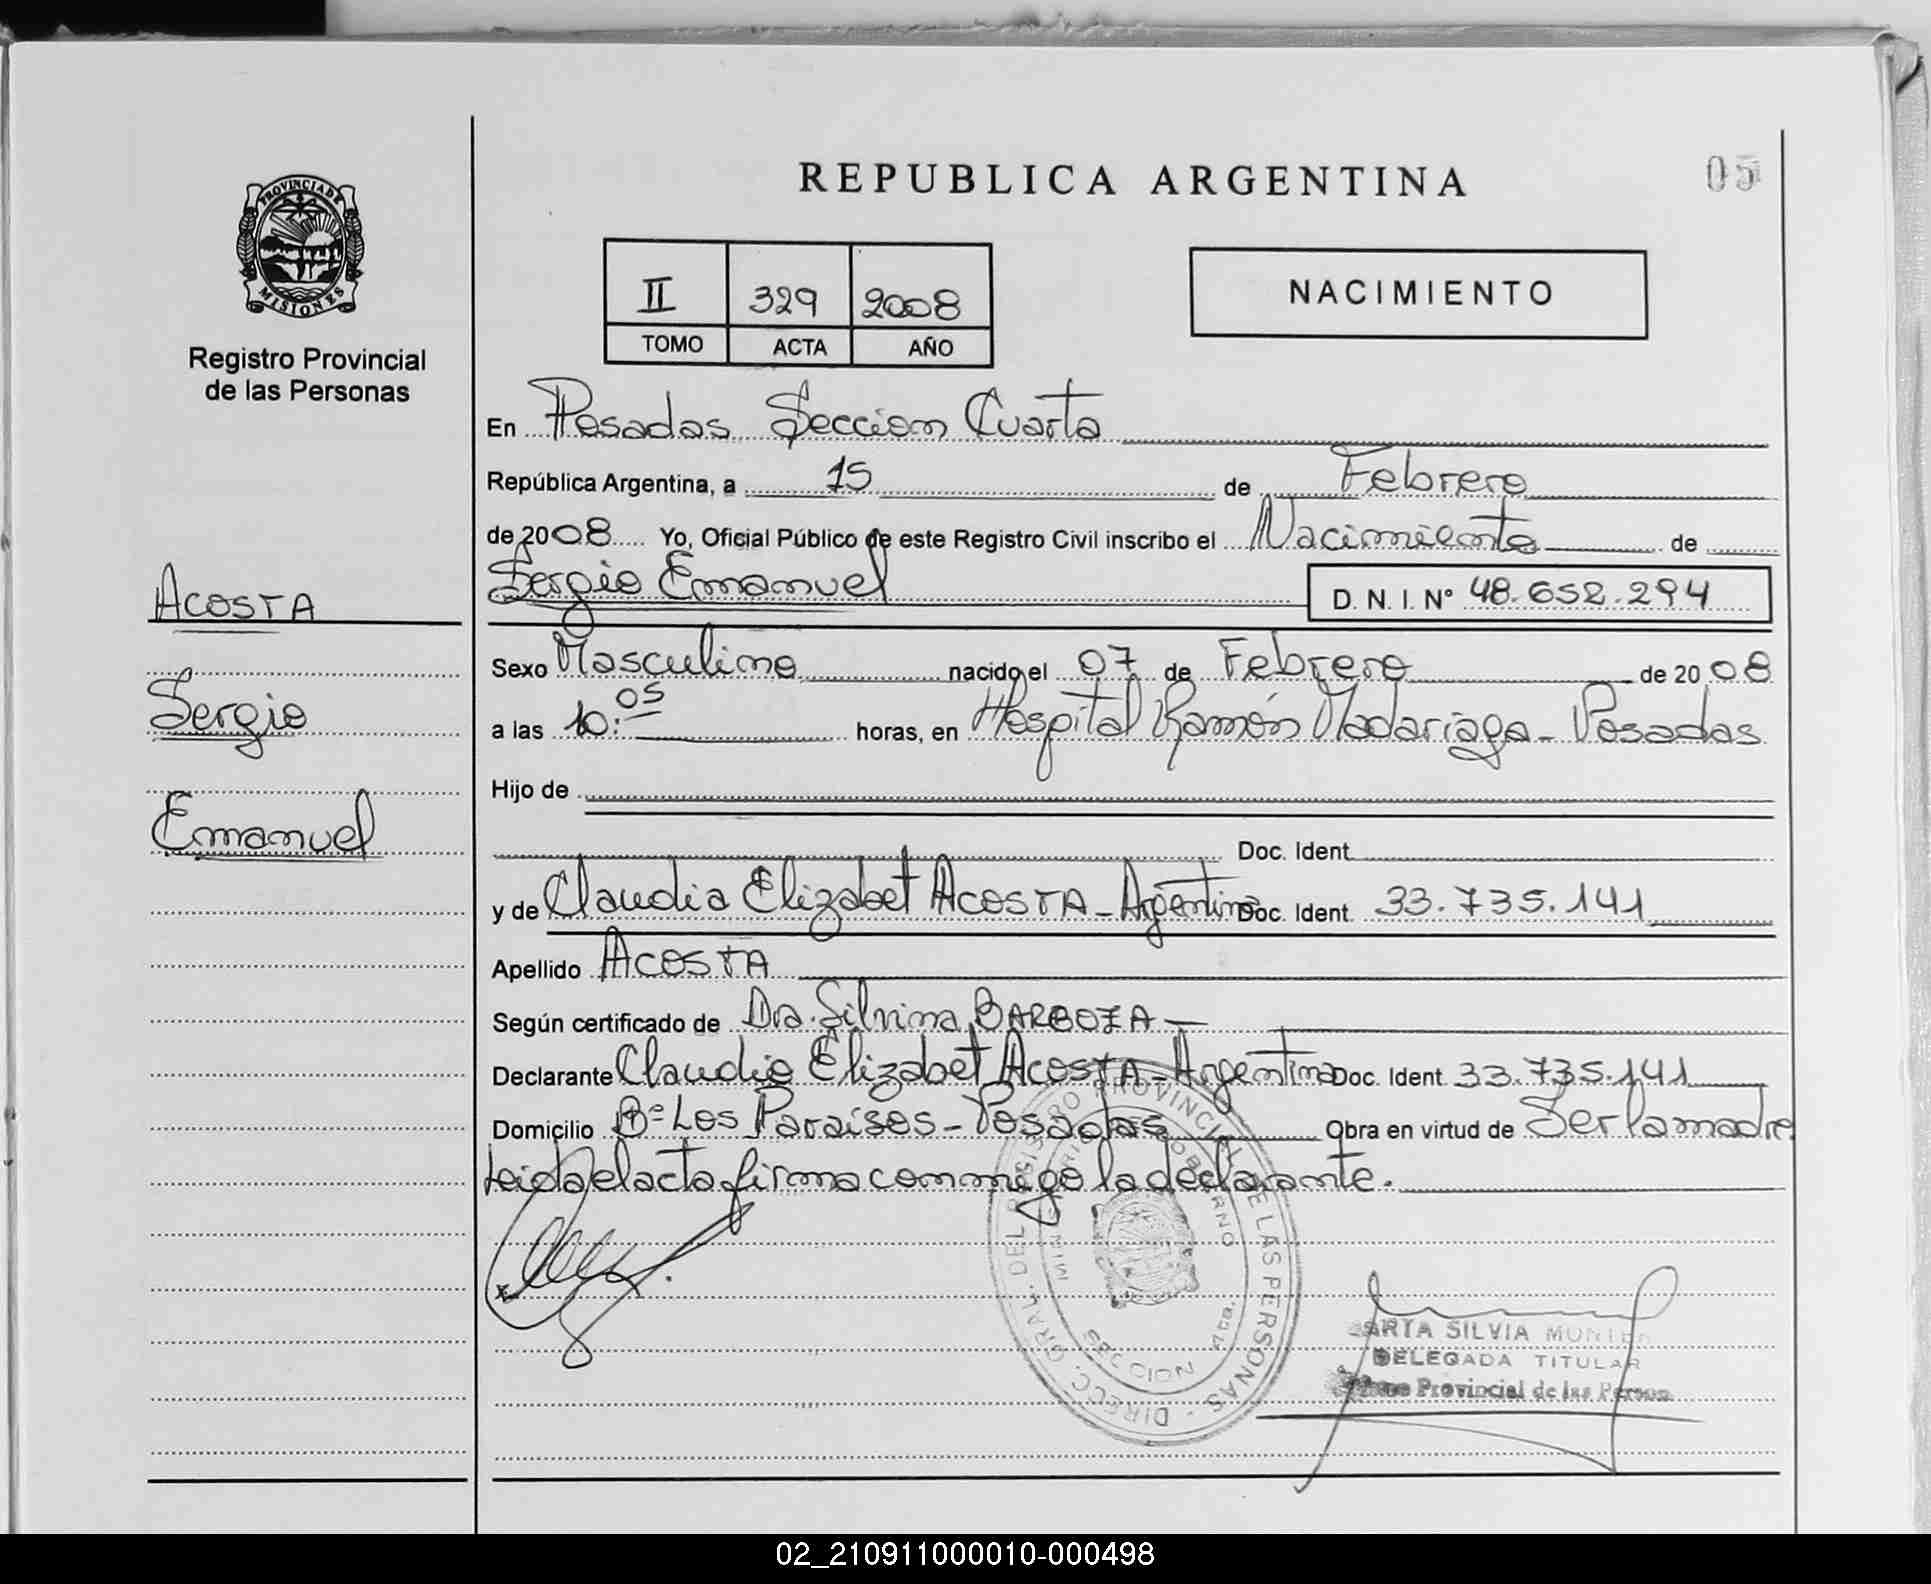 REPUBLICA ARGENTINA
05
PROVINCIA DE
MISIONES
Registro Provincial
de las Personas
II 329 2008
TOMO ACTA AÑO
NACIMIENTO
En Posadas Sección Cuarta
República Argentina, a 15 de Febrero
de 2008 Yo, Oficial Público de este Registro Civil inscribo el Nacimiento de
Sergio Emanuel D. N. I. Nº 48.652.294
ACOSTA
Sergio
Emanuel
Sexo Masculino nacido el 07 de Febrero de 2008
a las 10:05 horas, en Hospital Ramón Madariaga - Posadas
Hijo de
Doc. Ident.
y de Claudia Elizabet ACOSTA - Argentina Doc. Ident. 33.735.141
Apellido ACOSTA
Según certificado de Dra. Silvina BARBOZA -
Declarante Claudia Elizabet ACOSTA - Argentina Doc. Ident. 33.735.141
Domicilio Bº Los Paraísos - Posadas Obra en virtud de Ser la madre
Leida el acta firma conmigo la declarante.
DIRECC. GRAL. DEL REGISTRO PROVINCIAL DE LAS PERSONAS
SILVIA
DELEGADA TITULAR
Provincial de las Person
02_210911000010-000498